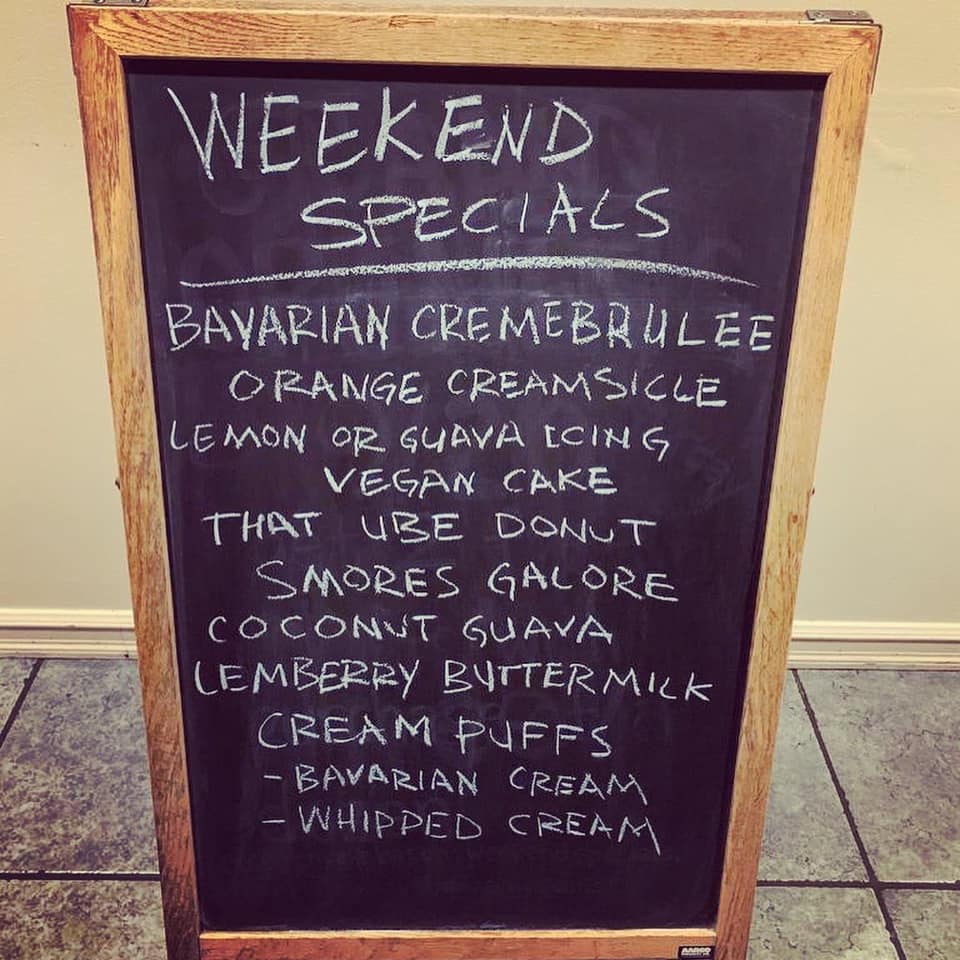 WEEKEND
SPECIALS
BAVARIAN CREMEBRULEE
ORANGE CREAMSICLE
LEMON OR GUAVA ICING
VEGAN CAKE
THAT UBE DONUT
SMORES GALORE
COCONUT GUAVA
LEMBERRY BUTTERMILK
CREAM PUFFS
- BAVARIAN CREAM
- WHIPPED CREAM
AARCO